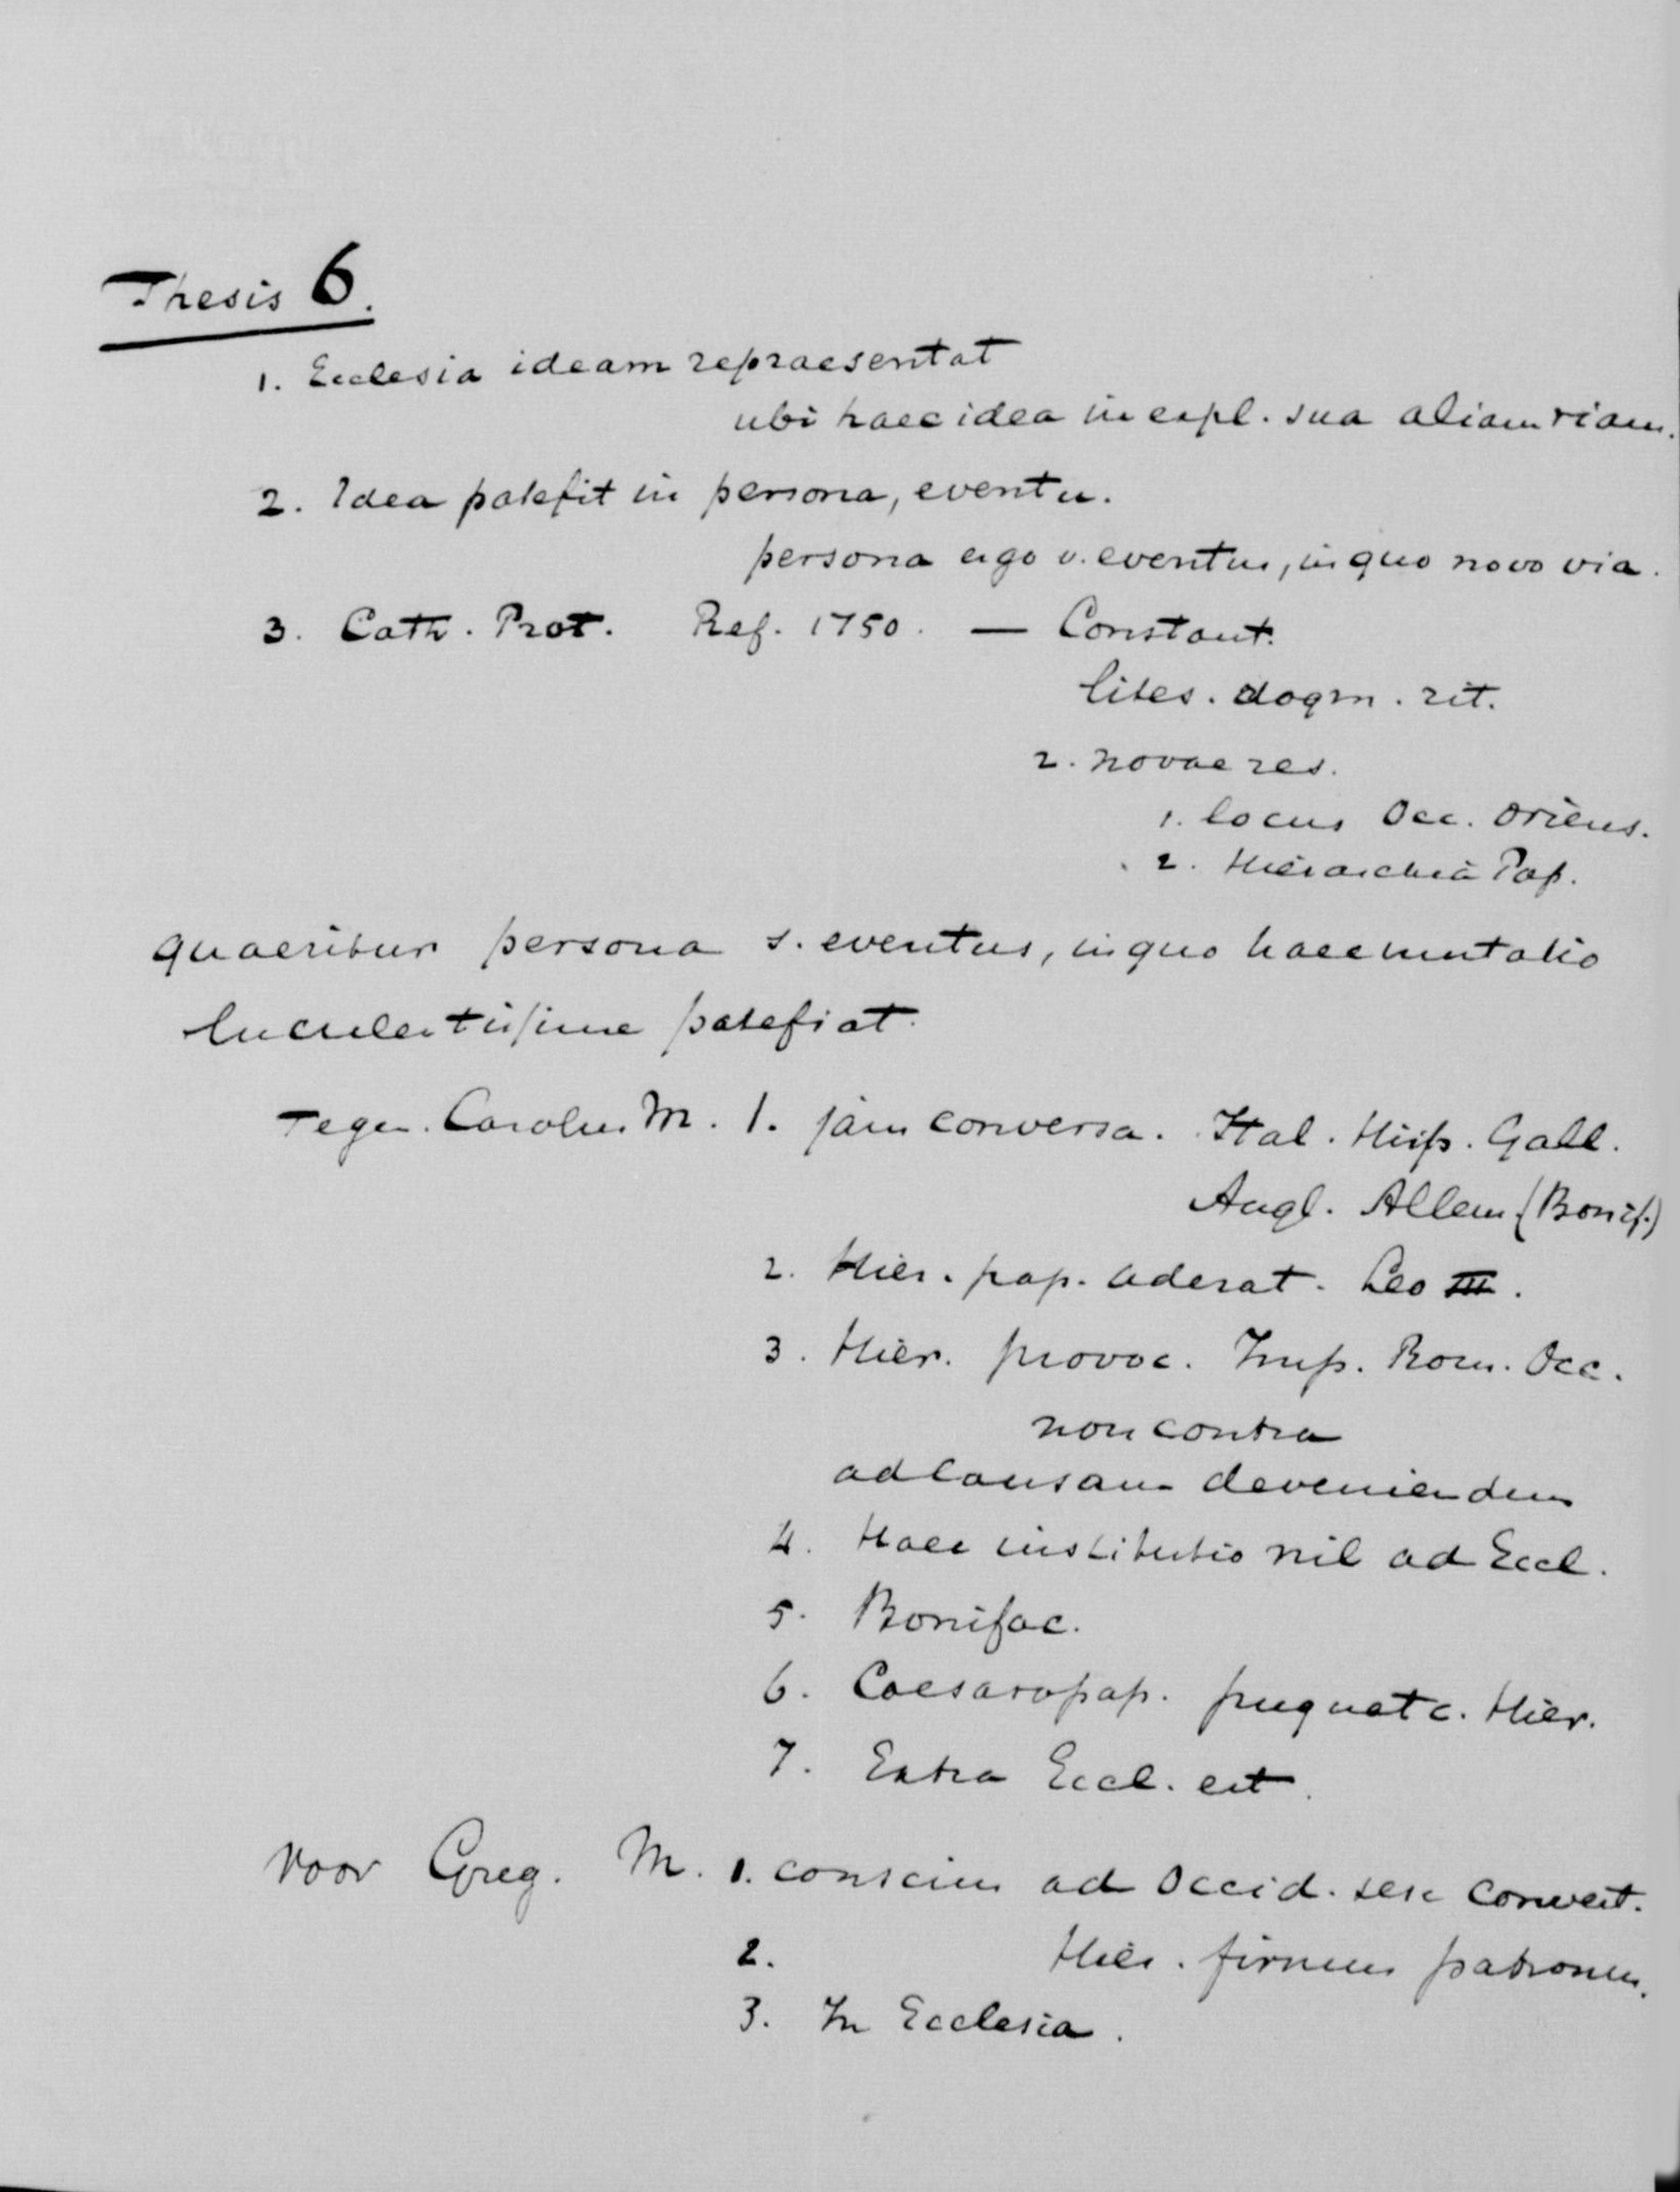 Thesis 6.
1. Ecclesia ideam repraesentat
ubi haec idea in expl. sua aliam viam.
2. Idea patefit in persona, eventu.
persona ergo v. eventus, in quo novo via.
3. Cath. Prot. Ref. 1750. — Constant.
lites. dogm. rit.
2. novae res.
1. locus Occ. Oriens.
2. Hierarchia Pap.
quaeritur persona s. eventus, in quo haec mutatio
luculentissime patefiat.
Tegen. Carolus M. 1. jam conversa. Ital. Hisp. Gall.
Angl. Allem (Bonif.)
2. Hier. pap. aderat. Leo III.
3. Hier. provoc. Imp. Rom. Occ.
non contra
ad causam deveniendum
4. Haec institutio nil ad Eccl.
5. Bonifac.
6. Caesaropap. pugnat c. Hier.
7. Extra Eccl. est.
Voor Greg. M. 1. conscius ad Occid. sese convert.
2. Hier. firmum patronum.
3. In Ecclesia.